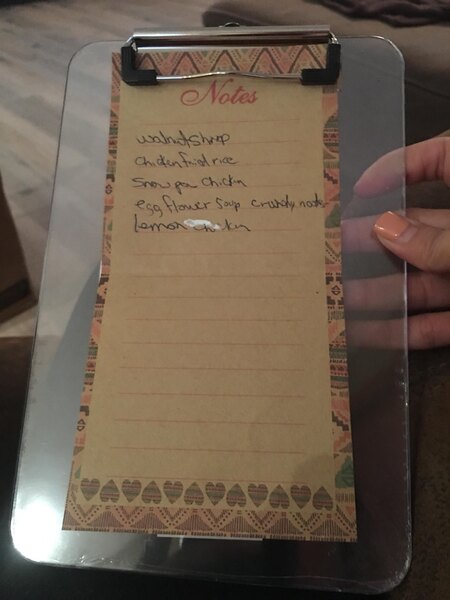 Notes
walnut shrop
chicken fried rice
Snow pea chicken
egg flower soup crunchy nood
lemon chicken